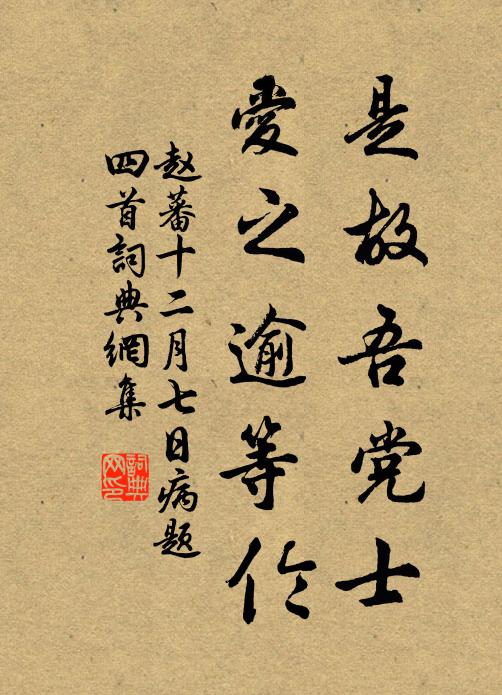 是故吾党士
愛之逾等伦
赵蕃十二月七日病题
四首詞典網集
詞典
网印